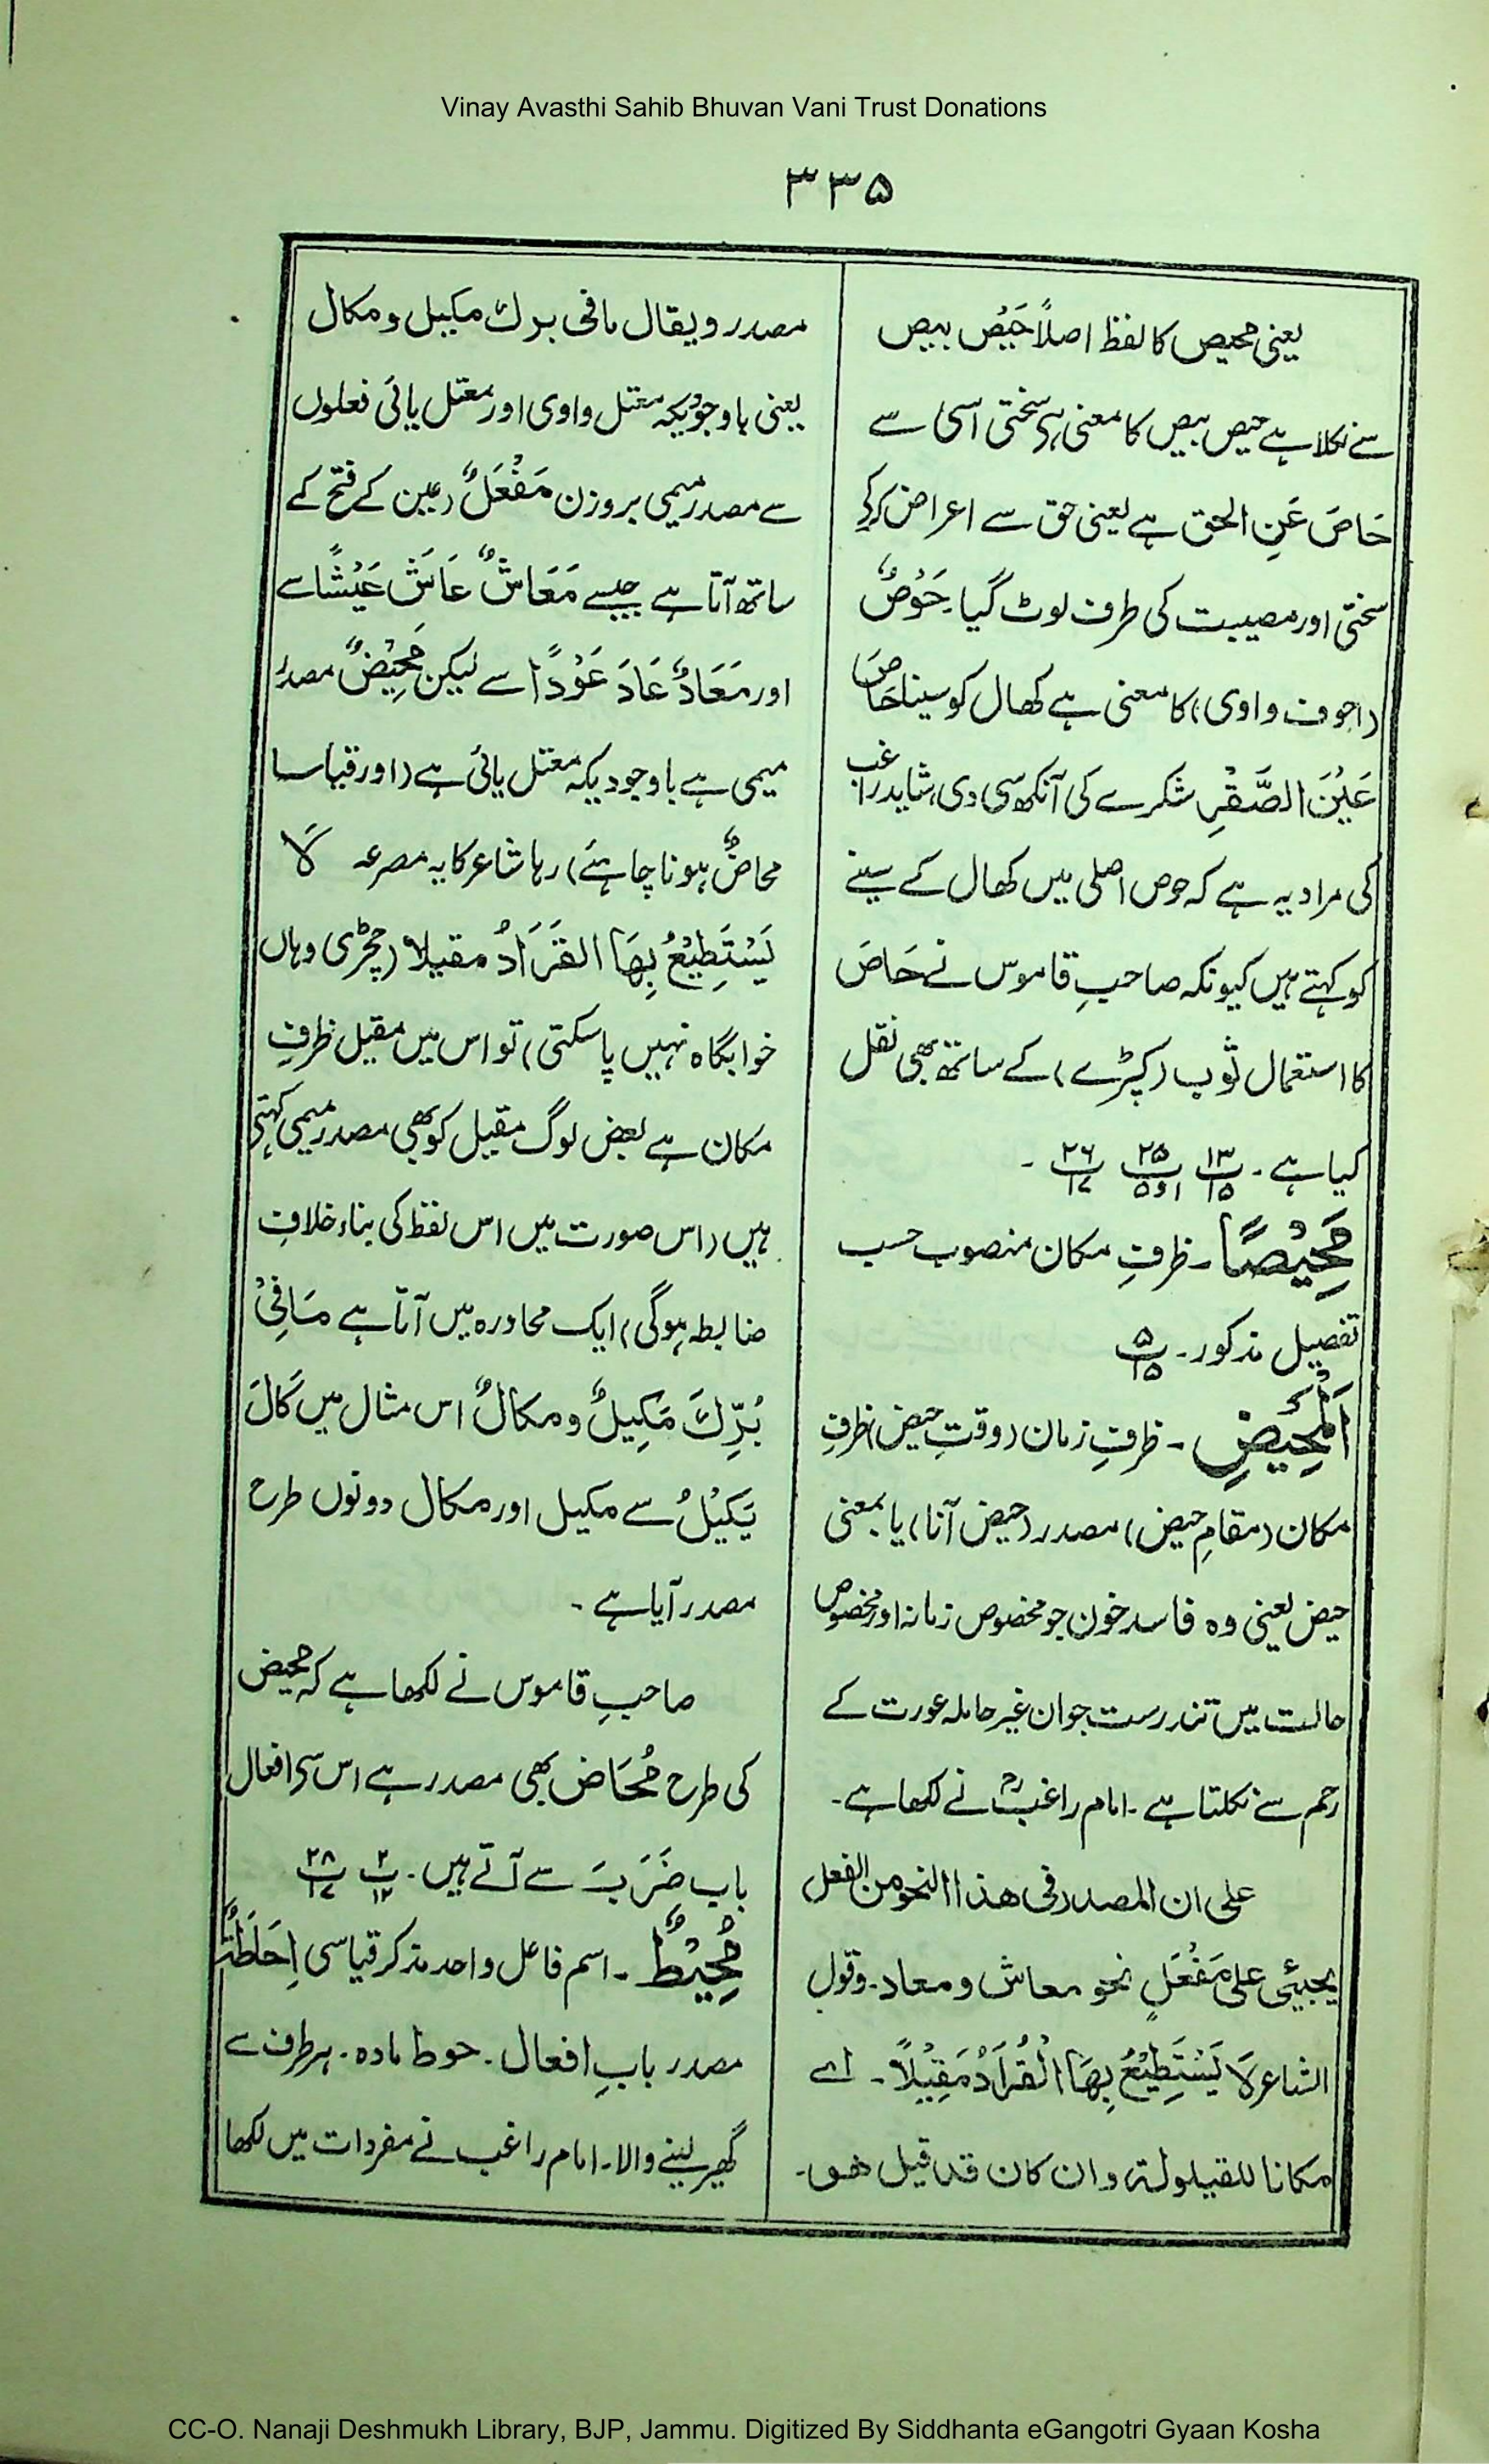 Vinay Avasthi Sahib Bhuvan Vani Trust Donations
۳۳۵
یعنی محیص کا لفظ اصلاً حَیْص بیص
سے نکلا ہے حیص بیص کا معنی ہی سختی اسی سے
حَاصَ عَنِ الحق ہے یعنی حق سے اعراض کرکے
سختی اور مصیبت کی طرف لوٹ گیا۔ حَوْصٌ
(اجوف واوی) کا معنی ہے کھال کو سینا حَاصَ
عَیْنَ الصَّقْرِ شکرے کی آنکھ سی دی، شاید راغب
کی مراد یہ ہے کہ حوص اصلی میں کھال کے سینے
کو کہتے ہیں کیونکہ صاحبِ قاموس نے حَاصَ
کا استعمال ثوب (کپڑے) کے ساتھ بھی نقل
کیا ہے۔ ۱۳/۱۵ ۲۵/۱و۵ ۲۶/۱۷ ۔
مَحِیْصًا۔ ظرفِ مکان منصوب حسب
تفصیل مذکور۔ ۵/۱۵
اَلْمَحِیْضِ۔ ظرفِ زمان (وقتِ حیض) ظرفِ
مکان (مقامِ حیض) مصدر (حیض آنا) یا بمعنی
حیض یعنی وہ فاسد خون جو مخصوص زمانہ اور مخصوص
حالت میں تندرست جوان غیر حاملہ عورت کے
رحم سے نکلتا ہے۔ امام راغبؒ نے لکھا ہے۔
علی ان المصدر فی ھذا النحو من الفعل
یجیئی علی مَفْعَلٍ نحو معاش و معاد۔ وقول
الشاعر لَا یَسْتَطِیْعُ بِھَا الْقُرَادُ مَقِیْلاً۔ اے
مکانا للقیلولۃ وان کان قد قیل ھو۔
مصدر و یقال ما فی برك مکیل و مکال
یعنی باوجودیکہ معتل واوی اور معتل یائی فعلوں
سے مصدر میمی بروزن مَفْعَلٌ (عین کے فتح کے
ساتھ آتا ہے جیسے مَعَاشٌ عَاشَ عَیْشًا سے
اور مَعَادٌ عَادَ عَوْدًا سے لیکن مَحِیْضٌ مصدر
میمی ہے باوجودیکہ معتل یائی ہے (اور قیاسا
محاضٌ ہونا چاہئے) رہا شاعر کا یہ مصرعہ لَا
یَسْتَطِیْعُ بِھَا القَرَادُ مقیلا (چچڑی وہاں
خوابگاہ نہیں پا سکتی) تو اس میں مقیل ظرفِ
مکان ہے بعض لوگ مقیل کو بھی مصدر میمی کہتے
ہیں (اس صورت میں اس لفظ کی بناء خلافِ
ضابطہ ہوگی) ایک محاورہ میں آتا ہے مَا فِیْ
بُرِّكَ مَکِیلٌ و مکالٌ اس مثال میں کَالَ
یَکِیْلُ سے مکیل اور مکال دونوں طرح
مصدر آیا ہے۔
صاحبِ قاموس نے لکھا ہے کہ محیض
کی طرح مُحَاض بھی مصدر ہے اس سے افعال
باب ضَرَبَ سے آتے ہیں۔ ۲/۱۲ ۲۸/۱۷
مُحِیْطٌ۔ اسم فاعل واحد مذکر قیاسی اِحَاطَۃٌ
مصدر بابِ افعال۔ حوط مادہ۔ ہر طرف سے
گھیر لینے والا۔ امام راغب نے مفردات میں لکھا
CC-O. Nanaji Deshmukh Library, BJP, Jammu. Digitized By Siddhanta eGangotri Gyaan Kosha